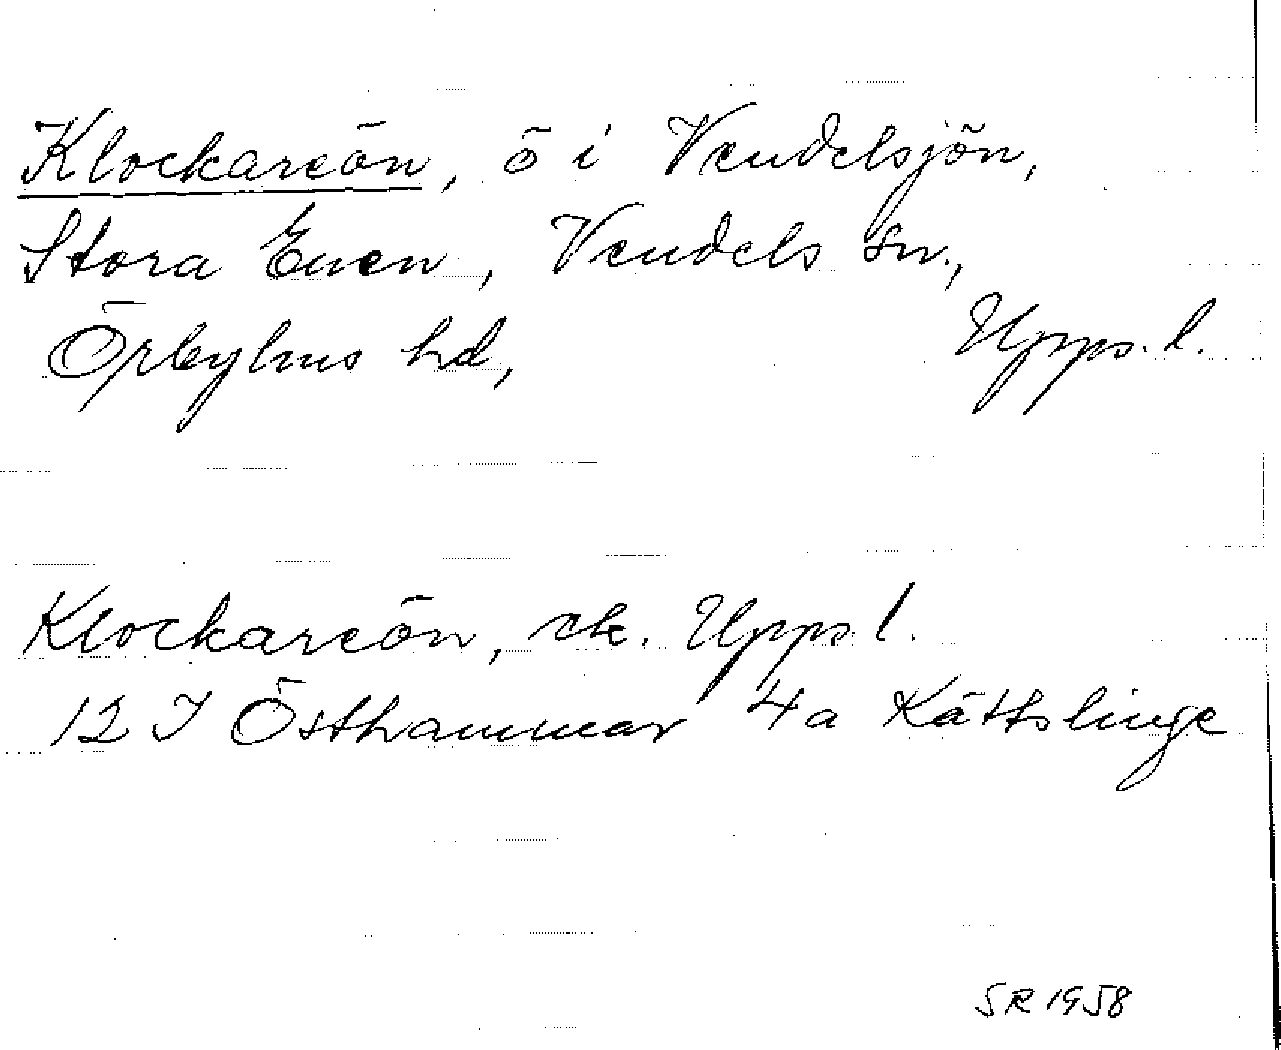 Klockareön, ö i Vendelsjön,
Stora Enen, Vendels sn.,
Örbyhus hd, Upps. l.
Klockareön, ek. Upps l.
12 I Östhammar 4a Kättslinge
SR 1958